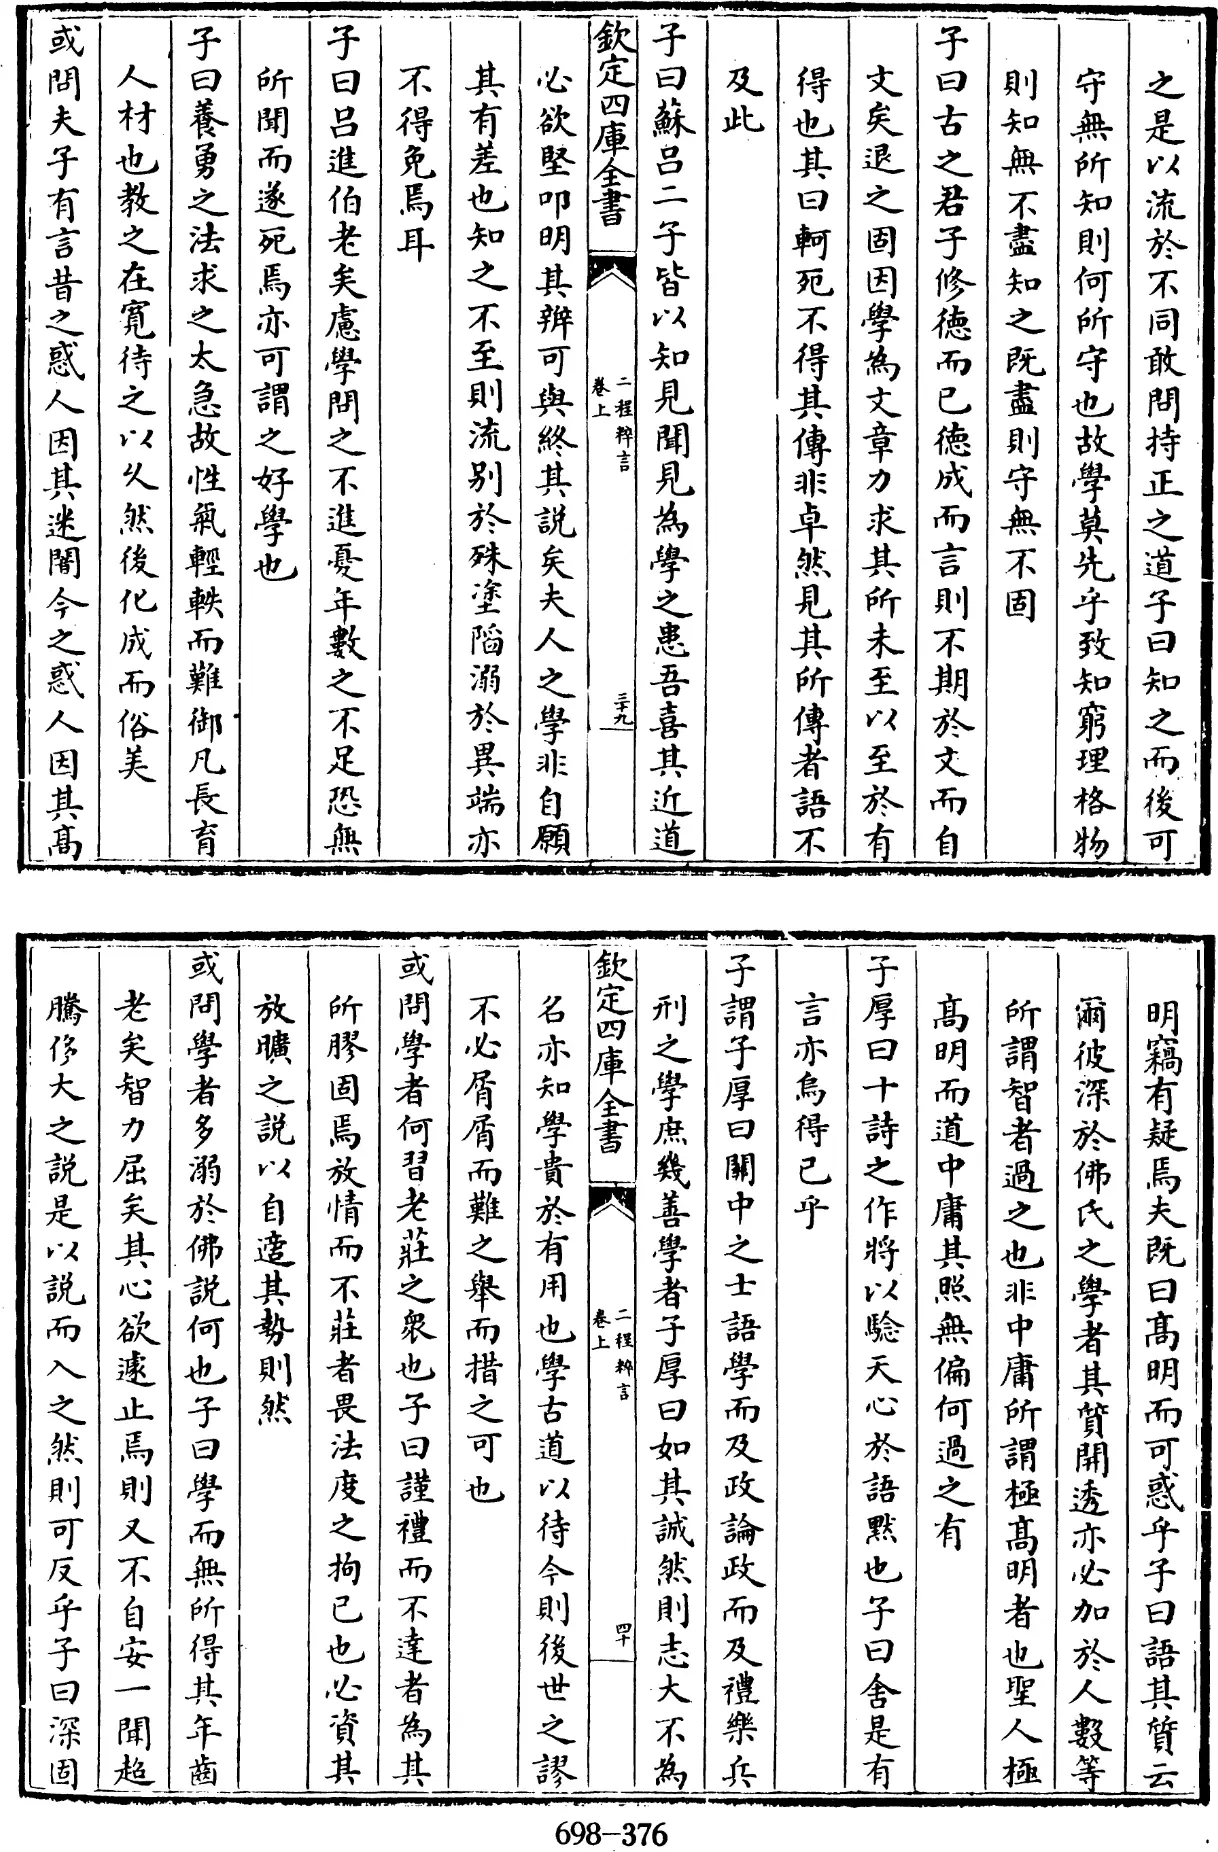 之是以流於不同敢問持正之道子曰知之而後可
守無所知則何所守也故學莫先乎致知窮理格物
則知無不盡知之既盡則守無不固
子曰古之君子修徳而已徳成而言則不期於文而自
文矣退之固因學為文章力求其所未至以至於有
得也其曰軻死不得其傳非卓然見其所傳者語不
及此
子曰蘇吕二子皆以知見聞見為學之患吾喜其近道
欽定四庫全書
二程粹言
卷上
三十九
必欲堅叩明其辨可與終其説矣夫人之學非自願
其有差也知之不至則流别於殊塗陷溺於異端亦
不得免焉耳
子曰吕進伯老矣慮學問之不進憂年數之不足恐無
所聞而遂死焉亦可謂之好學也
子曰養勇之法求之太急故性氣輕軼而難御凡長育
人材也教之在寛待之以久然後化成而俗美
或問夫子有言昔之惑人因其迷闇今之惑人因其髙
明竊有疑焉夫既曰髙明而可惑乎子曰語其質云
爾彼深於佛氏之學者其質開透亦必加於人數等
所謂智者過之也非中庸所謂極髙明者也聖人極
髙明而道中庸其照無偏何過之有
子厚曰十詩之作將以驗天心於語黙也子曰舍是有
言亦烏得已乎
子謂子厚曰關中之士語學而及政論政而及禮樂兵
刑之學庶幾善學者子厚曰如其誠然則志大不為
欽定四庫全書
二程粹言
卷上
四十
名亦知學貴於有用也學古道以待今則後世之謬
不必屑屑而難之舉而措之可也
或問學者何習老莊之衆也子曰謹禮而不達者為其
所膠固焉放情而不莊者畏法度之拘已也必資其
放曠之説以自適其勢則然
或問學者多溺於佛説何也子曰學而無所得其年齒
老矣智力屈矣其心欲遽止焉則又不自安一聞超
騰侈大之説是以説而入之然則可反乎子曰深固
698-376